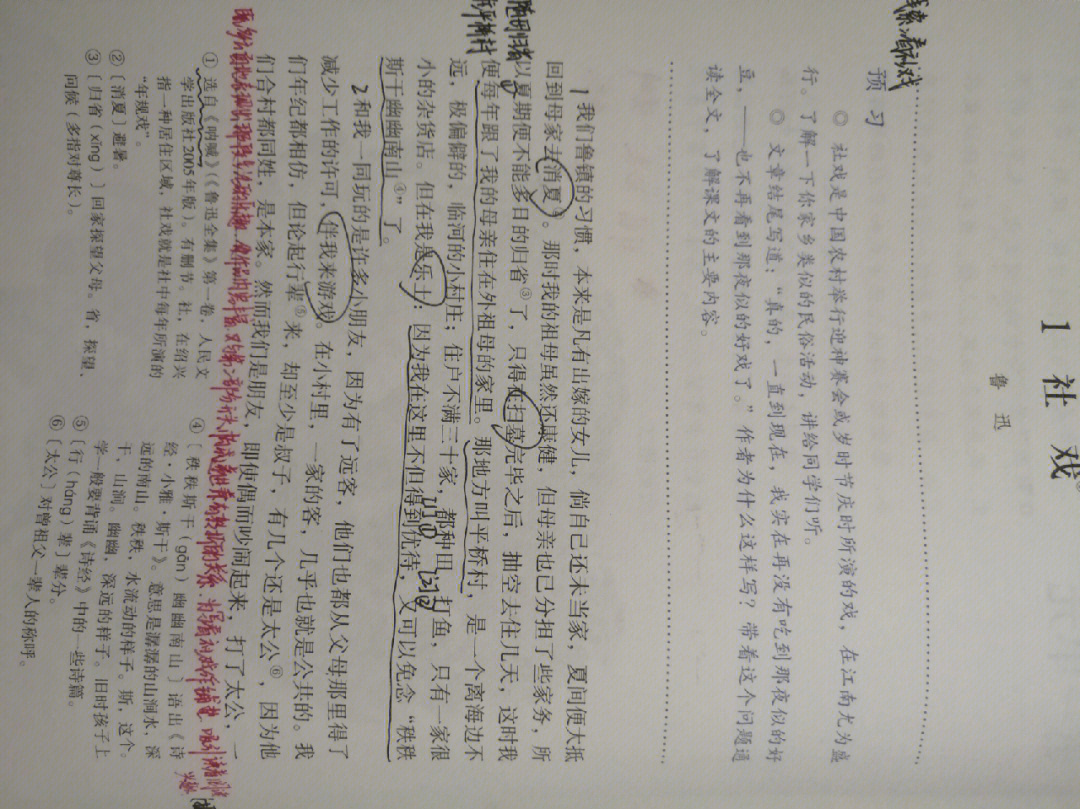 1 社戏
鲁迅
预习
◎ 社戏是中国农村举行迎神赛会或岁时节庆时所演的戏，在江南尤为盛
行。了解一下你家乡类似的民俗活动，讲给同学们听。
◎ 文章结尾写道：“真的，一直到现在，我实在再没有吃到那夜似的好
豆，——也不再看到那夜似的好戏了。”作者为什么这样写？带着这个问题通
读全文，了解课文的主要内容。
1 我们鲁镇的习惯，本来是凡有出嫁的女儿，倘自己还未当家，夏间便大抵
回到母家去消夏②。那时我的祖母虽然还康健，但母亲也已分担了些家务，所
以夏期便不能多日的归省③了，只得在扫墓完毕之后，抽空去住几天，这时我
便每年跟了我的母亲住在外祖母的家里。那地方叫平桥村，是一个离海边不
远，极偏僻的，临河的小村庄；住户不满三十家，都种田，打鱼，只有一家很
小的杂货店。但在我是乐土：因为我在这里不但得到优待，又可以免念“秩秩
斯干幽幽南山④”了。
2 和我一同玩的是许多小朋友，因为有了远客，他们也都从父母那里得了
减少工作的许可，伴我来游戏。在小村里，一家的客，几乎也就是公共的。我
们年纪都相仿，但论起行辈⑤来，却至少是叔子，有几个还是太公⑥，因为他
们合村都同姓，是本家。然而我们是朋友，即使偶而吵闹起来，打了太公，一
① 选自《呐喊》（《鲁迅全集》第一卷，人民文
学出版社2005年版）。有删节。社，在绍兴
指一种居住区域，社戏就是社中每年所演的
“年规戏”。
② 〔消夏〕避暑。
③ 〔归省（xǐng）〕回家探望父母。省，探望、
问候（多指对尊长）。
④ 〔秩秩斯干（gān）幽幽南山〕语出《诗
经·小雅·斯干》。意思是潺潺的山涧水，深
远的南山。秩秩，水流动的样子。斯，这个。
干，山涧。幽幽，深远的样子。旧时孩子上
学一般要背诵《诗经》中的一些诗篇。
⑤ 〔行（háng）辈〕辈分。
⑥ 〔太公〕对曾祖父一辈人的称呼。